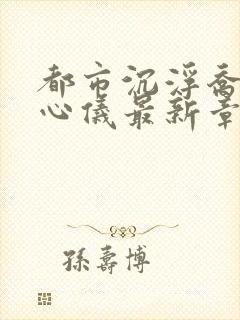 都市沉浮乔
心儀最新章
孫壽博